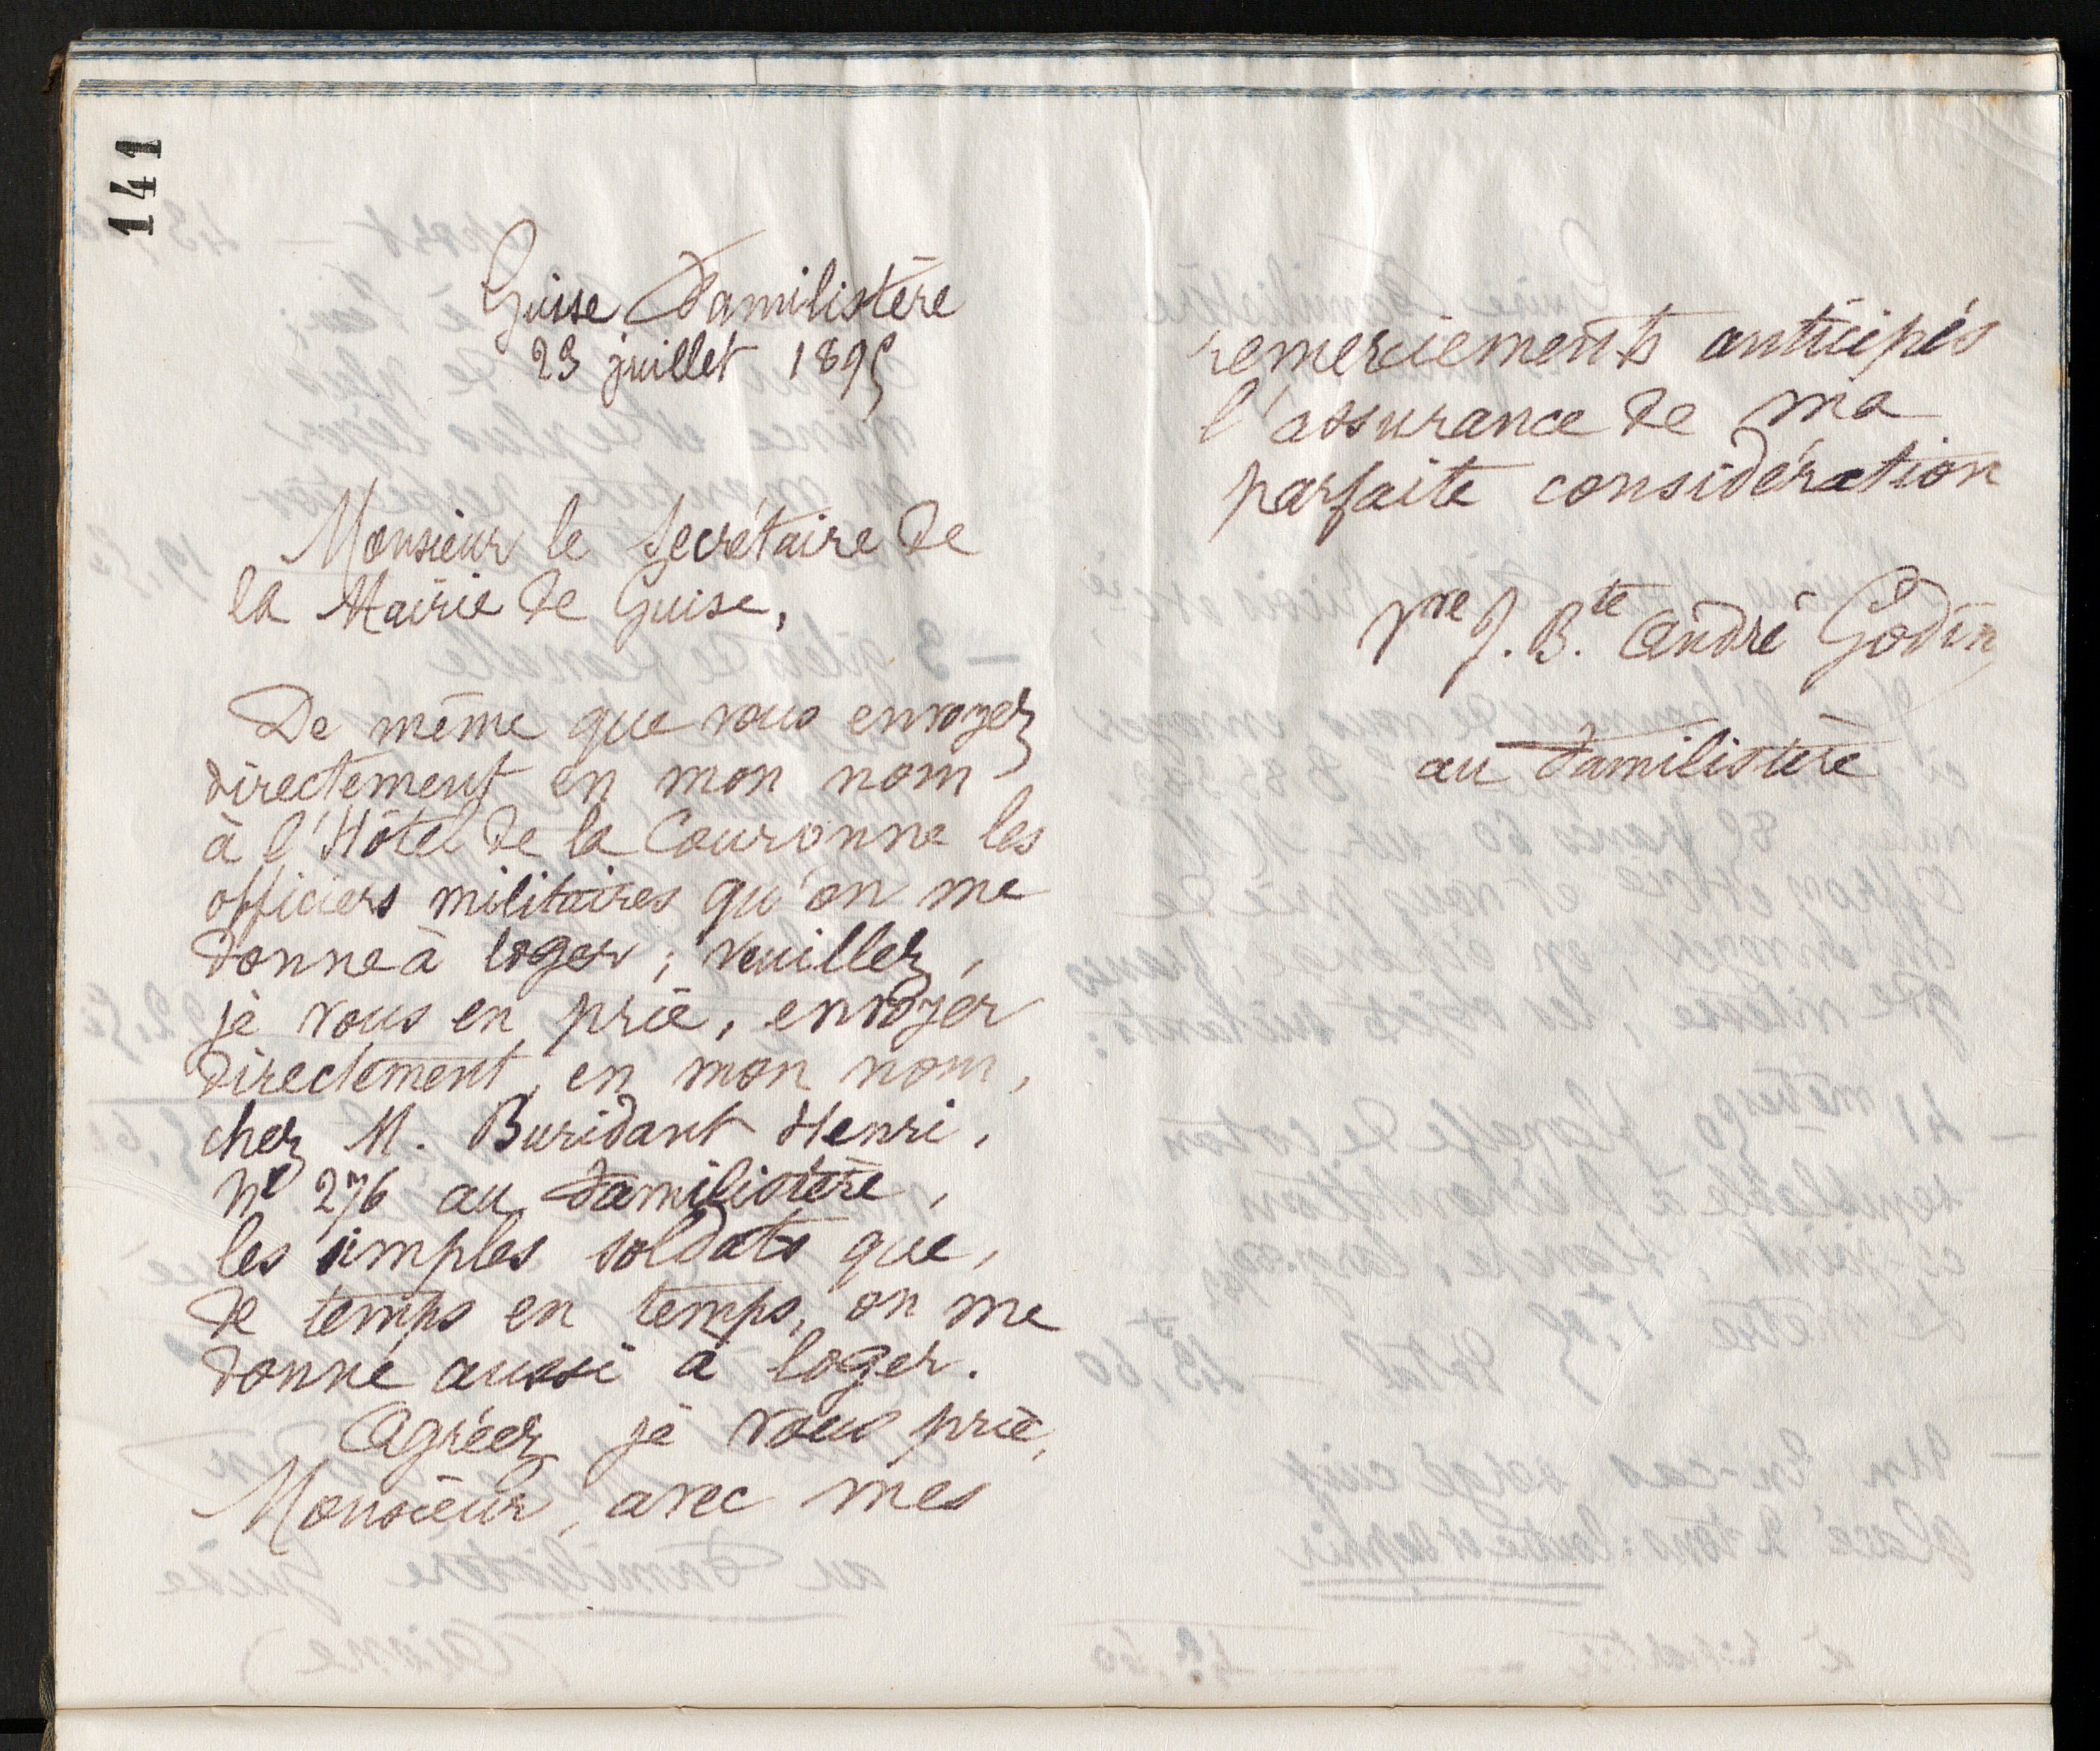 141
Guise Familistère
23 juillet 1895
Monsieur le Secrétaire de
la Mairie de Guise,
De même que vous envoyez
directement en mon nom
à l'Hôtel de la Couronne les
officiers militaires qu'on me
donne à loger ; veuillez,
je vous en prie, envoyer
directement, en mon nom,
chez M. Buridant Henri,
No 276 au Familistère,
les simples soldats que,
de temps en temps, on me
donne aussi à loger.
Agréez je vous prie,
Monsieur, avec mes
remerciements anticipés
l'assurance de ma
parfaite considération
Vve J. Bte André Godin
au Familistère